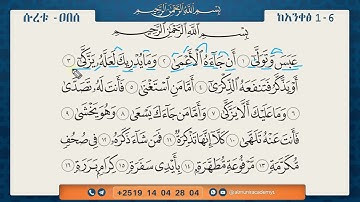 ሱረቱ - ዐበሰ
بِسْمِ اللَّهِ الرَّحْمَٰنِ الرَّحِيمِ
ከአንቀፅ 1 - 6
بِسْمِ اللَّهِ الرَّحْمَٰنِ الرَّحِيمِ
عَبَسَ وَتَوَلَّىٰ ١ أَن جَاءَهُ الْأَعْمَىٰ ٢ وَمَا يُدْرِيكَ لَعَلَّهُ يَزَّكَّىٰ ٣
أَوْ يَذَّكَّرُ فَتَنفَعَهُ الذِّكْرَىٰ ٤ أَمَّا مَنِ اسْتَغْنَىٰ ٥ فَأَنتَ لَهُ تَصَدَّىٰ
٦ وَمَا عَلَيْكَ أَلَّا يَزَّكَّىٰ ٧ وَأَمَّا مَن جَاءَكَ يَسْعَىٰ ٨ وَهُوَ يَخْشَىٰ ٩
فَأَنتَ عَنْهُ تَلَهَّىٰ ١٠ كَلَّا إِنَّهَا تَذْكِرَةٌ ١١ فَمَن شَاءَ ذَكَرَهُ ١٢ فِي صُحُفٍ
مُّكَرَّمَةٍ ١٣ مَّرْفُوعَةٍ مُّطَهَّرَةٍ ١٤ بِأَيْدِي سَفَرَةٍ ١٥ كِرَامٍ بَرَرَةٍ ١٦
+2519 14 04 28 04